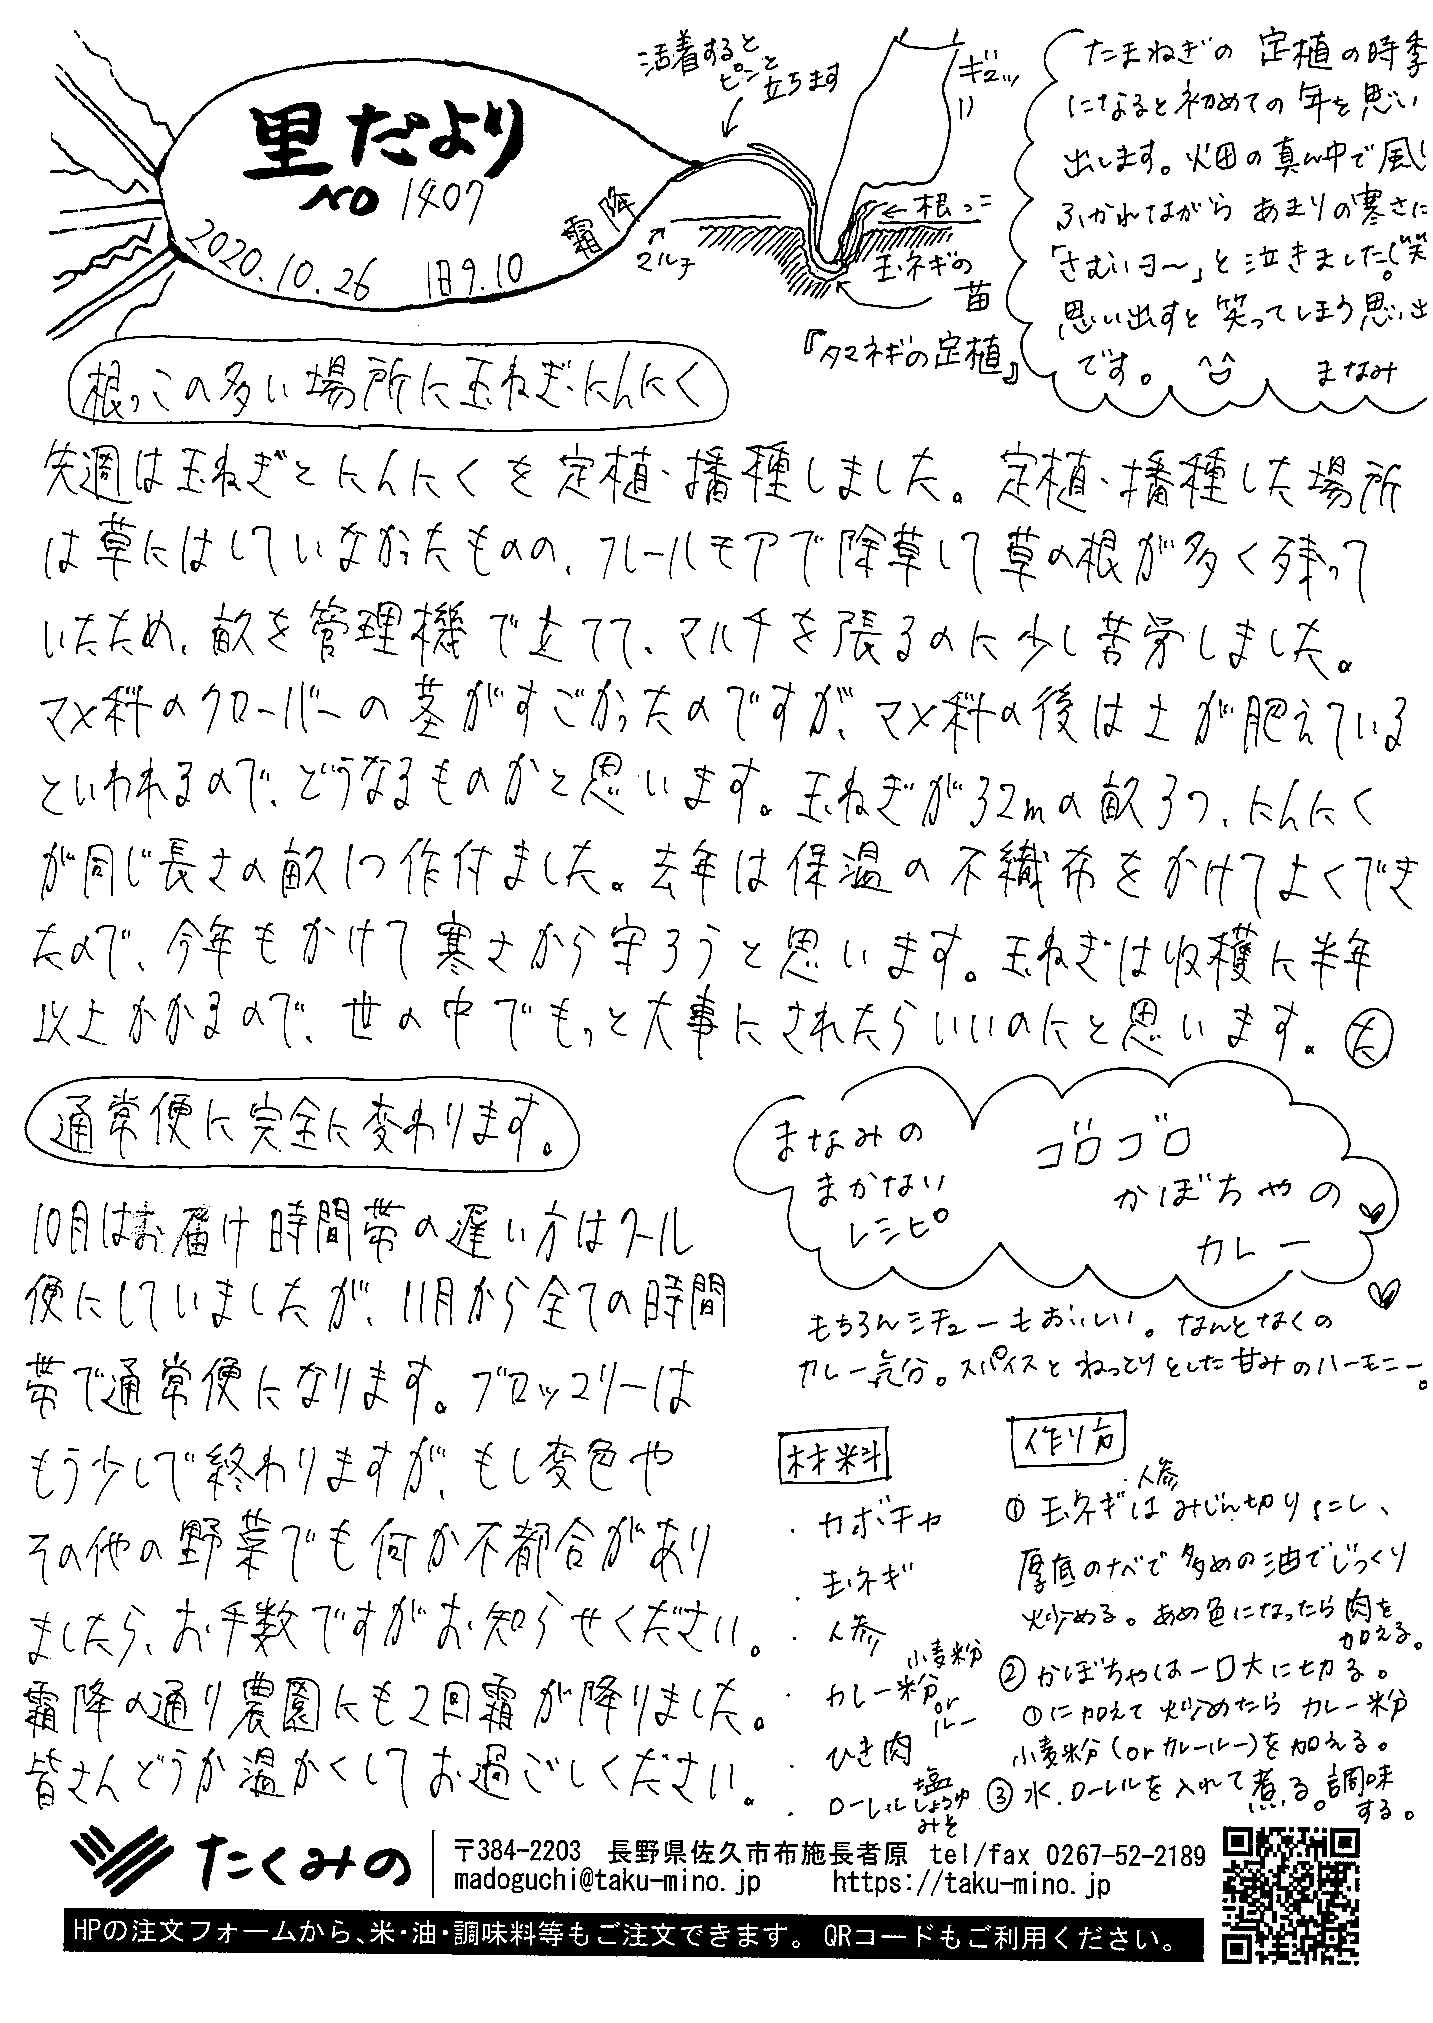 里だより
NO 1407
2020.10.26 旧9.10 霜降
活着すると
ピンと
立ちます
ギュッ
←根っこ
マルチ
玉ネギの
苗
『タマネギの定植』
たまねぎの 定植の時季
になると初めての年を思い
出します。畑の真ん中で風に
ふかれながら あまりの寒さに
「さむいヨ〜」と泣きました(笑)。
思い出すと笑ってしまう思い出
です。 まなみ
根っこの多い場所に玉ねぎ・にんにく
先週は玉ねぎとにんにくを定植・播種しました。定植・播種した場所
は草にはしていなかったものの、フレールモアで除草して草の根が多く残って
いたため、畝を管理機で立てて、マルチを張るのに少し苦労しました。
マメ科のクローバーの茎がすごかったのですが、マメ科の後は土が肥えている
といわれるので、どうなるものかと思います。玉ねぎが32mの畝3つ、にんにく
が同じ長さの畝1つ作付ました。去年は保温の不織布をかけてよくでき
たので、今年もかけて寒さから守ろうと思います。玉ねぎは収穫に半年
以上かかるので、世の中でもっと大事にされたらいいのにと思います。(た)
通常便に完全に変わります。
10月はお届け時間帯の遅い方はクール
便にしていましたが、11月から全ての時間
帯で通常便になります。ブロッコリーは
もう少しで終わりますが、もし変色や
その他の野菜でも何か不都合があり
ましたら、お手数ですがお知らせください。
霜降の通り農園にも2回霜が降りました。
皆さんどうか温かくしてお過ごしください。
まなみの
まかない
レシピ
ゴロゴロ
かぼちゃの
カレー
もちろんシチューもおいしい。なんとなくの
カレー気分。スパイスとねっとりとした甘みのハーモニー。
材料
・カボチャ
・玉ネギ
・人参
・カレー粉 小麦粉
or
ルー
・ひき肉
・ローレル 塩
しょうゆ
みそ
作り方
① 玉ネギ・人参はみじん切りにし、
厚底のナベで多めの油でじっくり
炒める。あめ色になったら肉を
加える。
② かぼちゃは一口大に切る。
①に加えて炒めたらカレー粉
小麦粉(orカレールー)を加える。
③ 水、ローレルを入れて煮る。調味
する。
たくみの
〒384-2203 長野県佐久市布施長者原 tel/fax 0267-52-2189
madoguchi@taku-mino.jp https://taku-mino.jp
HPの注文フォームから、米・油・調味料等もご注文できます。QRコードもご利用ください。